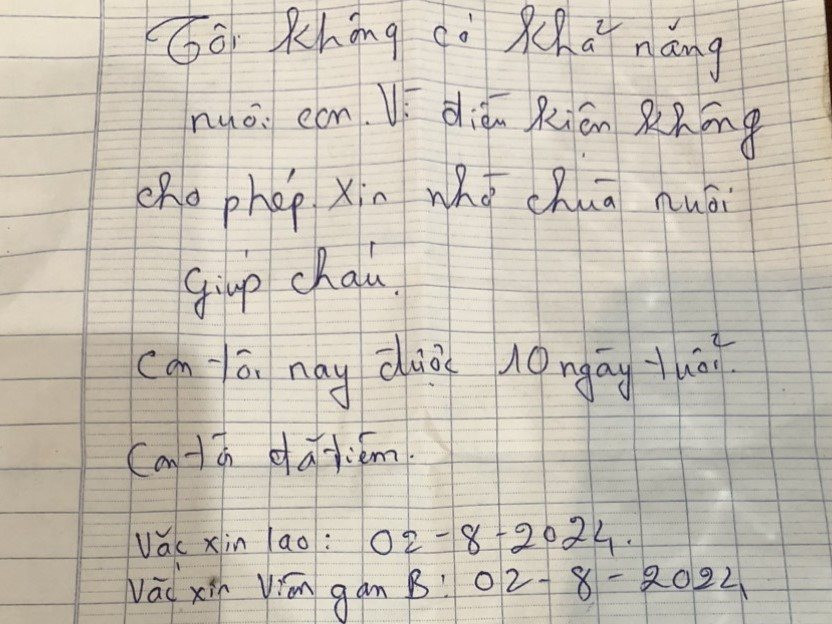 Tôi không có khả năng
nuôi con. Vì điều kiện không
cho phép. Xin nhờ chùa nuôi
giúp cháu.
Con tôi nay được 10 ngày tuổi.
Con tôi đã tiêm.
Vắc xin lao: 02-8-2024.
Vắc xin Viêm gan B: 02-8-2024